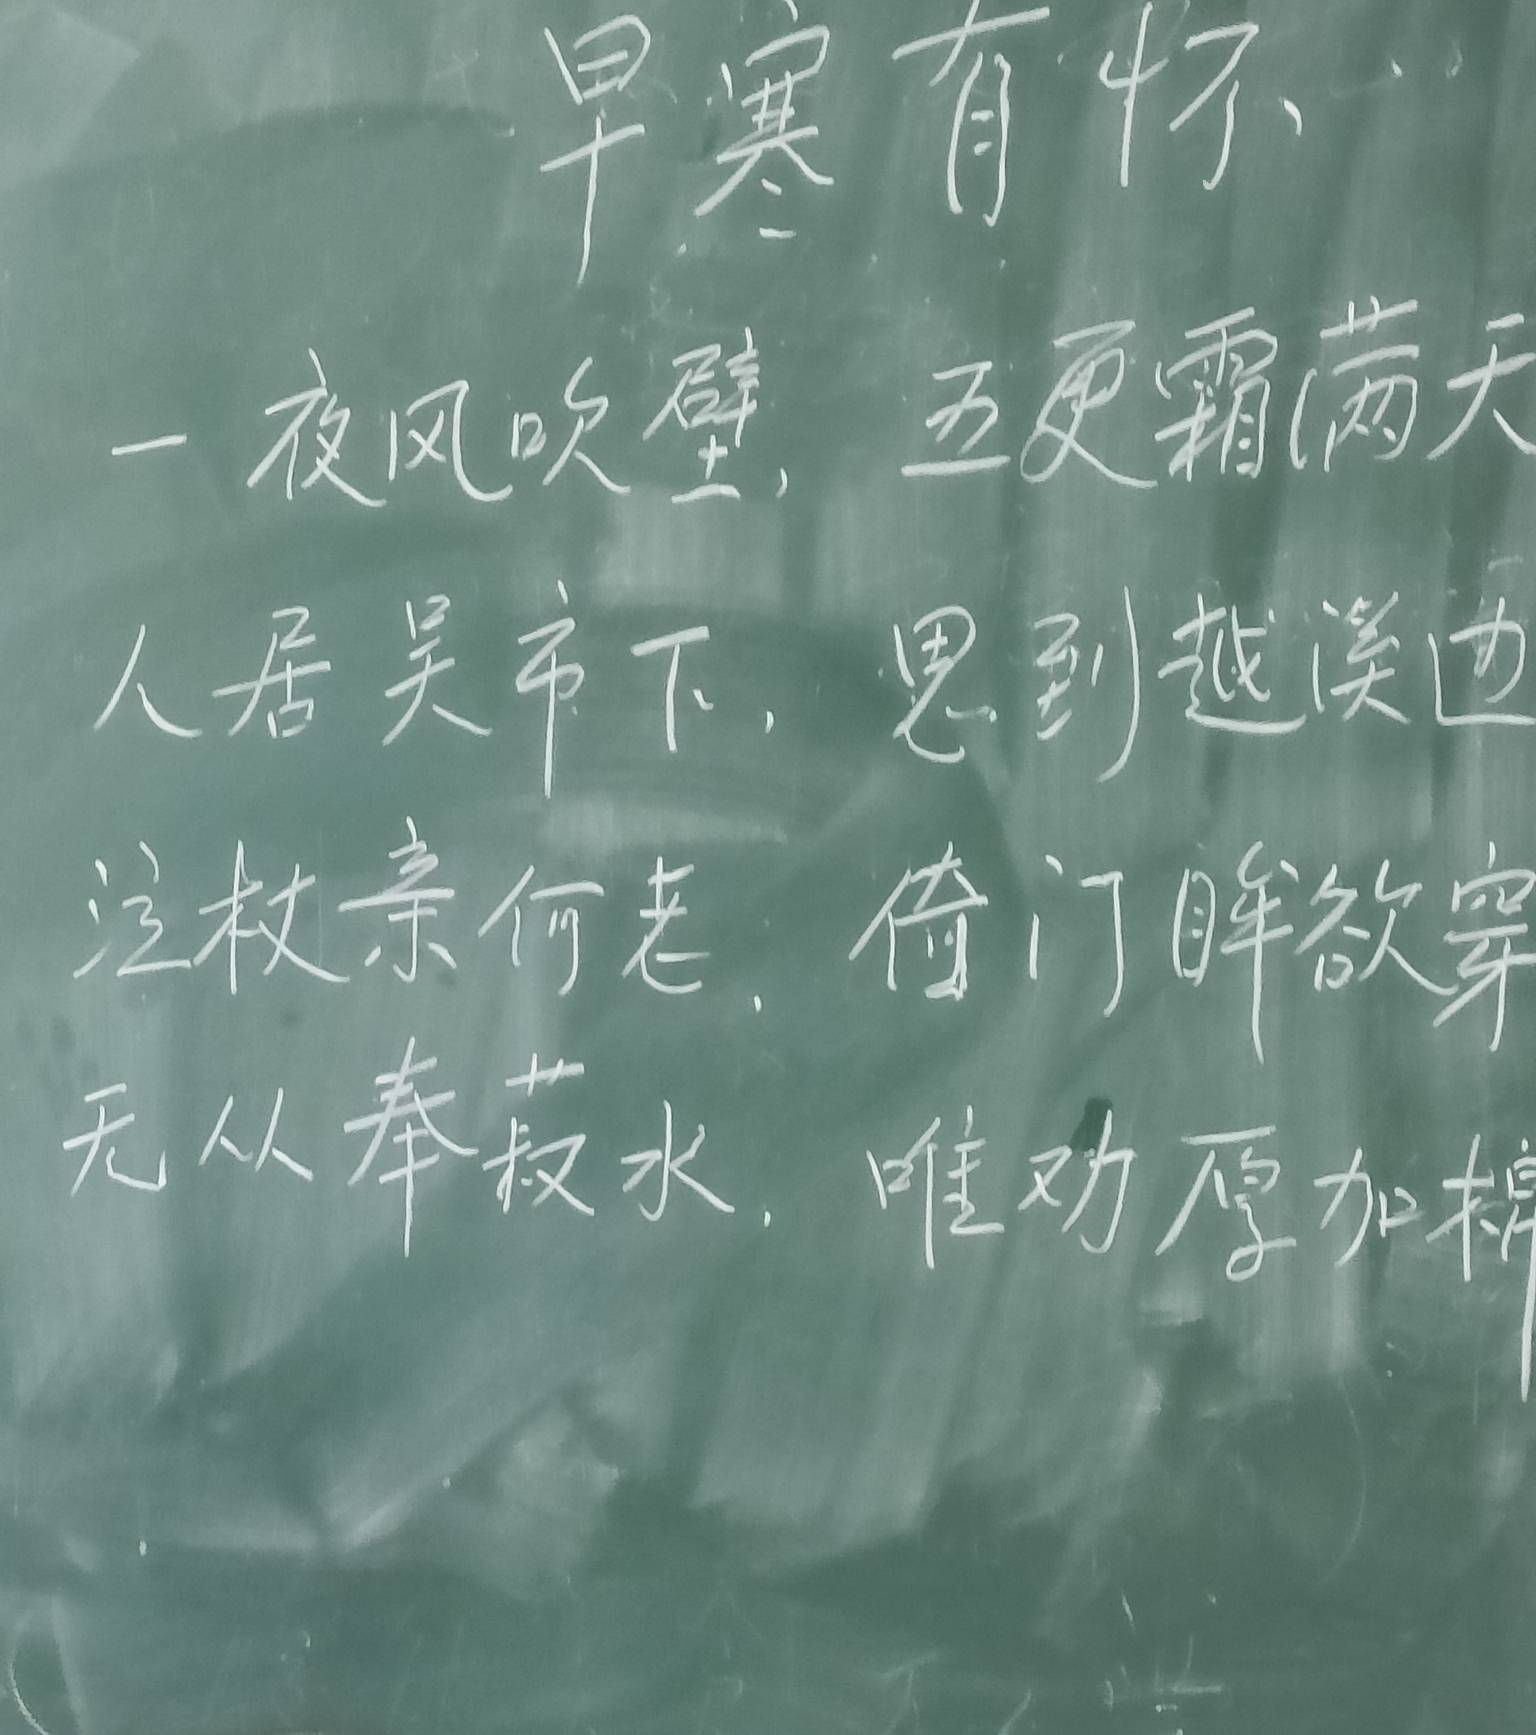 早寒有怀
一夜风吹壁，五更霜满天
人居吴市下，思到越溪边
泣杖亲何老，倚门眸欲穿
无从奉菽水，唯劝厚加棉